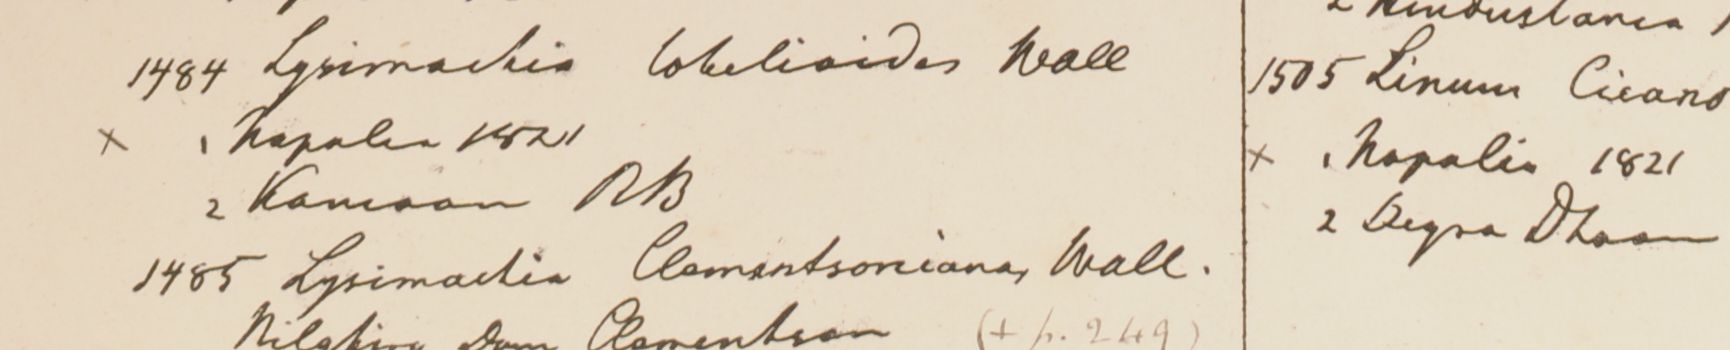 1484 Lysimachia lobelioides Wall
× 1 Napalia 1821
2 Kamaon RB
1485 Lysimachia Clementsoniana, Wall.
Dom Clementson (+ p. 249)
2 Hindustania
1505 Linum
× 1 Napalia 1821
2 Deyra Dhoon